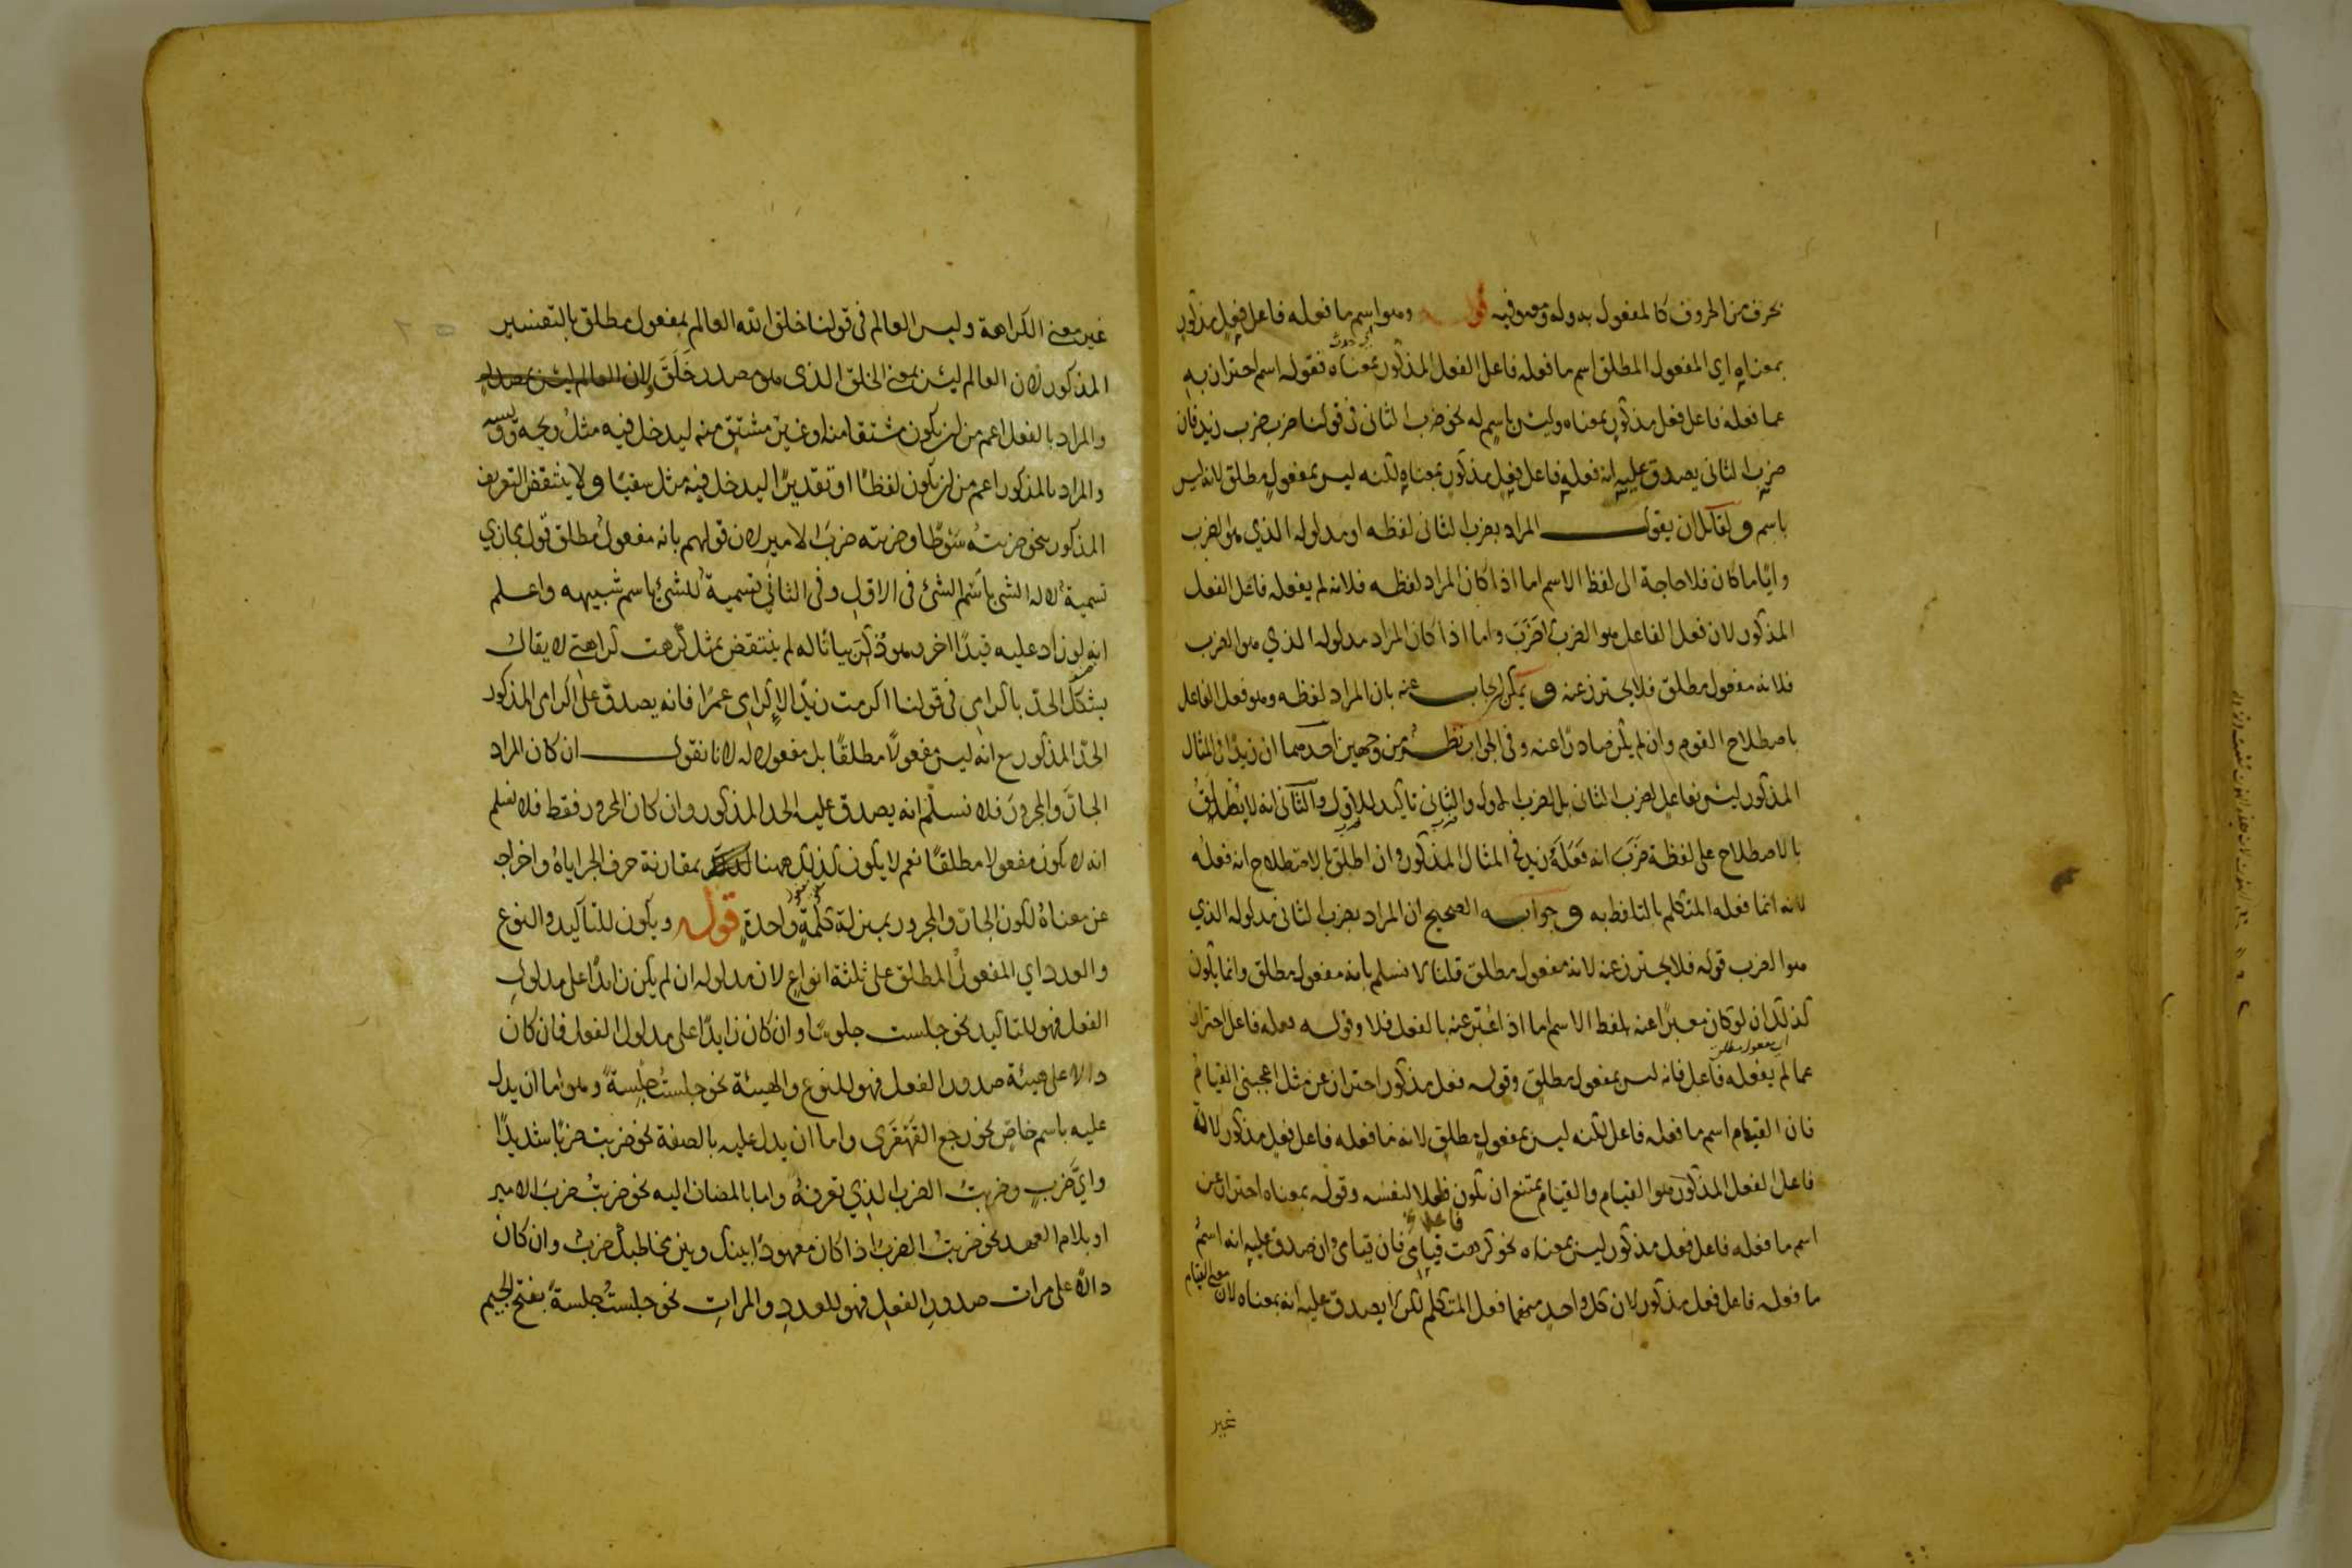 بحرف من الحروف كالمفعول به وله ومعه وفيه قوله وهو اسم ما فعله فاعل فعل مذكور
بمعناه اي المفعول المطلق اسم ما فعله فاعل الفعل المذكور بمعناه فقوله اسم احتراز به
عما فعله فاعل فعل مذكور بمعناه وليس باسم له نحو ضرب الثاني في قولنا ضرب ضرب زيد فان
ضرب الثاني يصدق عليه انه فعله فاعل فعل مذكور بمعناه لكنه ليس بمفعول مطلق لانه ليس
باسم ولقائل ان يقول المراد بضرب الثاني لفظه او مدلوله الذي هو الضرب
وايا ما كان فلا حاجة الى لفظ الاسم اما اذا كان المراد لفظه فلانه لم يفعله فاعل الفعل
المذكور لان فعل الفاعل هو الضرب لا ضرب واما اذا كان المراد مدلوله الذي هو الضرب
فلانه مفعول مطلق فلا يحترز عنه ويمكن ان يجاب عنه بان المراد لفظه وهو فعل الفاعل
باصطلاح القوم وان لم يكن صادرًا عنه وفي الجواب نظر من وجهين احدهما ان زيدًا في المثال
المذكور ليس بفاعل لضرب الثاني بل لضرب الاول والثاني تاكيد للاول والثاني انه لا يطلق
بالاصطلاح على لفظة ضرب انه فعله زيد في المثال المذكور وان اطلق بالاصطلاح انه فعله
لانه انما فعله المتكلم بالتلفظ به وجوابه الصحيح ان المراد بضرب الثاني مدلوله الذي
هو الضرب قوله فلا يحترز عنه لانه مفعول مطلق قلنا لا نسلم بانه مفعول مطلق وانما يكون
كذلك ان لو كان معبرًا عنه بلفظ الاسم اما اذا عبر عنه بالفعل فلا وقوله فعله فاعل احتراز
اي مفعول مطلق
عما لم يفعله فاعل فانه ليس بمفعول مطلق وقوله فعل مذكور احتراز عن مثل اعجبني القيام
فان القيام اسم ما فعله فاعل لكنه ليس بمفعول مطلق لانه ما فعله فاعل فعل مذكور لان
فاعل الفعل المذكور هو القيام والقيام يمتنع ان يكون فاعلا لنفسه وقوله بمعناه احتراز عن
اسم ما فعله فاعل فعل مذكور ليس بمعناه نحو كرهت قيامي فان قيامي وان صدق عليه انه اسم
ما فعله فاعل فعل مذكور لان كل واحد منهما فعل المتكلم لكن لا يصدق عليه انه بمعناه لان معنى القيام
غير
غير معنى الكراهة وليس العالم في قولنا خلق الله العالم بمفعول مطلق بالتفسير
المذكور لان العالم ليس بمعنى الخلق الذي هو مصدر خلق ولان العالم ليس بمصدر
والمراد بالفعل اعم من ان يكون مشتقا منه او غير مشتق منه ليدخل فيه مثل ويحه وويسه
والمراد بالمذكور اعم من ان يكون لفظًا او تقديرًا ليدخل فيه مثل سقيًا ولا ينتقض التعريف
المذكور بنحو ضربته سوطًا وضربته ضرب الامير لان قولهم بانه مفعول مطلق قول مجازي
تسمية لالة الشي باسم الشي في الاول وفي الثاني تسمية للشي باسم شبيهه واعلم
انه لو زاد عليه قيدًا اخر وهو ذكر بيانًا له لم ينتقض بمثل كرهت كراهتي لا يقال
يشكل الحد باكرامي في قولنا اكرمت زيدًا لاكرامي عمرًا فانه يصدق على اكرامي المذكور
الحد المذكور مع انه ليس مفعولًا مطلقًا بل مفعول له لانا نقول ان كان المراد
الجار والمجرور فلا نسلم انه يصدق عليه الحد المذكور وان كان المجرور فقط فلا نسلم
انه لا يكون مفعولا مطلقًا نعم لا يكون كذلك ههنا بمقارنة حرف الجر اياه واخراجه
عن معناه لكون الجار والمجرور بمنزلة كلمة واحدة قوله ويكون للتاكيد والنوع
والعدد اي المفعول المطلق على ثلثة انواع لان مدلوله ان لم يكن زايدًا على مدلول
الفعل فهو للتاكيد نحو جلست جلوسًا وان كان زايدًا على مدلول الفعل فان كان
دالا على هيئة صدور الفعل فهو للنوع والهيئة نحو جلست جلسة وهو اما ان يدل
عليه باسم خاص نحو رجع القهقرى واما ان يدل عليه بالصفة نحو ضربت ضربًا شديدًا
واي ضرب وضربت الضرب الذي تعرفه واما بالمضاف اليه نحو ضربت ضرب الامير
او بلام العهد نحو ضربت الضرب اذا كان معهودًا بينك وبين مخاطبك ضرب وان كان
دالًا على مرات صدور الفعل فهو للعدد والمرات نحو جلست جلسة بفتح الجيم